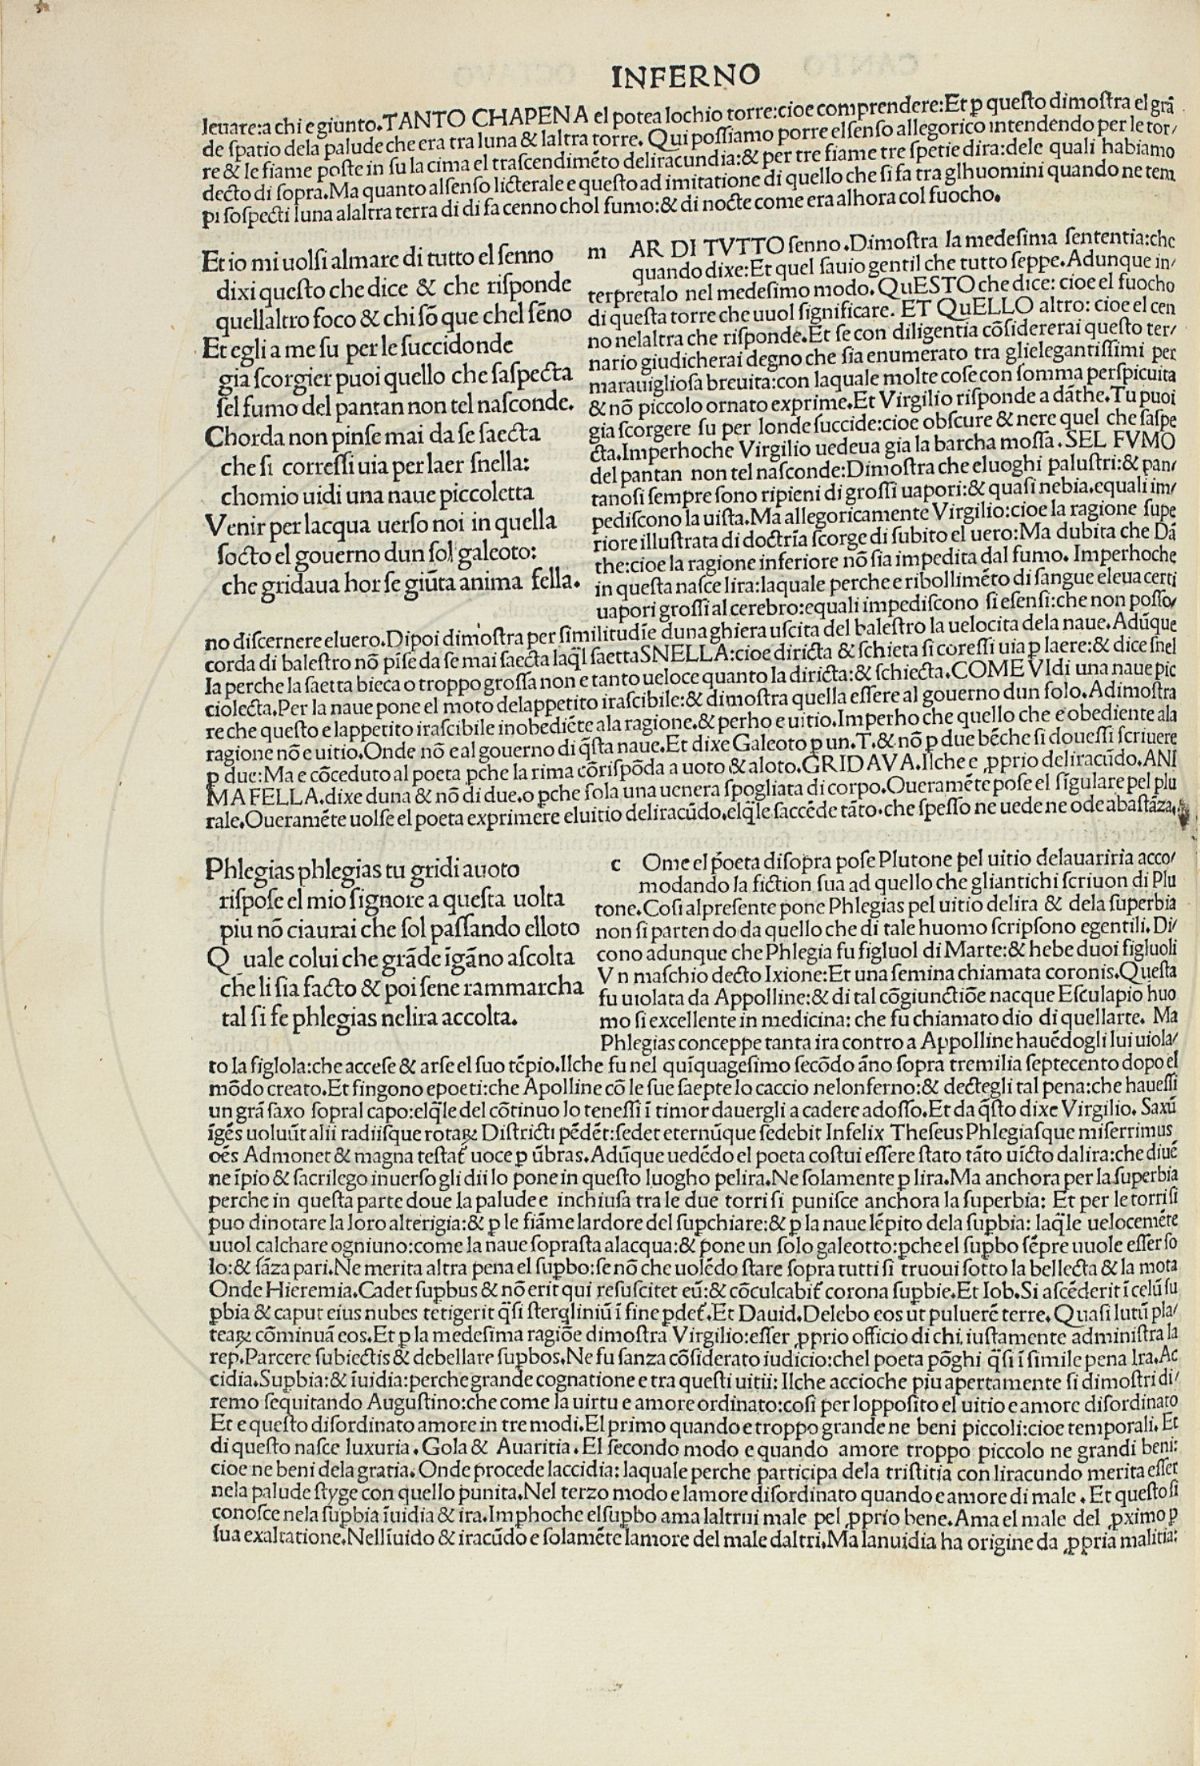 INFERNO
leuare:a chi e giunto.TANTO CHAPENA el potea lochio torre:cioe comprendere:Et ꝑ questo dimostra el grã
de spatio dela palude che era tra luna & laltra torre. Qui possiamo porre el senso allegorico intendendo per le tor/
re & le fiame poste in su la cima el trascendimẽto deliracundia:& per tre fiame tre spetie dira:dele quali habiamo
decto di sopra.Ma quanto alsenso licterale e questo ad imitatione di quello che si fa tra glhuomini quando ne tem
pi sospecti luna alaltra terra di di fa cenno chol fumo:& di nocte come era alhora col fuocho.
Et io mi uolsi almare di tutto el senno
dixi questo che dice & che risponde
quellaltro foco & chi sõ que chel fẽno
Et egli a me su per le succidonde
gia scorgier puoi quello che saspecta
sel fumo del pantan non tel nasconde.
Chorda non pinse mai da se saecta
che si corressi uia per laer snella:
chomio uidi una naue piccoletta
Venir per lacqua uerso noi in quella
socto el gouerno dun sol galeoto:
che gridaua hor se giũta anima fella.
m AR DI TVTTO senno.Dimostra la medesima sententia:che
quando dixe:Et quel sauio gentil che tutto seppe.Adunque in/
terpretalo nel medesimo modo.QuESTO che dice: cioe el fuocho
di questa torre che uuol significare. ET QuELLO altro: cioe el cen
no nelaltra che risponde.Et se con diligentia cõsidererai questo ter/
nario giudicherai degno che sia enumerato tra glielegantissimi per
marauigliosa breuita:con laquale molte cose con somma perspicuita
& nõ piccolo ornato exprime.Et Virgilio risponde a dãthe.Tu puoi
gia scorgere su per londe succide:cioe obscure & nere quel che saspe
cta.Imperhoche Virgilio uedeua gia la barcha mossa.SEL FVMO
del pantan non tel nasconde:Dimostra che eluoghi palustri:& pan/
tanosi sempre sono ripieni di grossi uapori:& quasi nebia.equali im/
pediscono la uista.Ma allegoricamente Virgilio:cioe la ragione supe
riore illustrata di doctria scorge di subito el uero:Ma dubita che Dã
the:cioe la ragione inferiore nõ sia impedita dal fumo. Imperhoche
in questa nasce lira:laquale perche e ribollimẽto di sangue eleua certi
uapori grossi al cerebro:equali impediscono si esensi:che non posso/
no discernere eluero.Dipoi dimostra per similitudĩe duna ghiera uscita del balestro la uelocita dela naue.Adũque
corda di balestro nõ pĩse da se mai saecta laq̃l saettaSNELLA:cioe diricta & schieta si coressi uia ꝑ laere:& dice snel
la perche la saetta bieca o troppo grossa non e tanto ueloce quanto la diricta:& schiecta.COME VIdi una naue pic
ciolecta.Per la naue pone el moto delappetito irascibile:& dimostra quella essere al gouerno dun solo.Adimostra
re che questo e lappetito irascibile inobediẽte ala ragione.& perho e uitio.Imperho che quello che e obediente ala
ragione nõ e uitio.Onde nõ e al gouerno di q̃sta naue.Et dixe Galeoto ꝑ un.T.& nõ ꝑ due bẽche si douessi scriuere
ꝑ due:Ma e cõceduto al poeta ꝑche la rima cõrispõda a uoto & aloto.GRIDAVA.Ilche e ꝓprio deliracũdo.ANI
MA FELLA.dixe duna & nõ di due.o ꝑche sola una uenera spogliata di corpo.Oueramẽte pose el sĩgulare pel plu
rale.Oueramẽte uolse el poeta exprimere eluitio deliracũdo.elq̃le saccẽde tãto.che spesso ne uede ne ode abastãza.
Phlegias phlegias tu gridi auoto
rispose el mio signore a questa uolta
piu nõ ciaurai che sol passando elloto
Quale colui che grãde ĩgãno ascolta
che li sia facto & poi sene rammarcha
tal si fe phlegias nelira accolta.
c Ome el poeta disopra pose Plutone pel uitio delauariria acco/
modando la fiction sua ad quello che gliantichi scriuon di Plu
tone.Cosi alpresente pone Phlegias pel uitio delira & dela superbia
non si parten do da quello che di tale huomo scripsono egentili. Di/
cono adunque che Phlegia fu figluol di Marte:& hebe duoi figluoli
Vn maschio decto Ixione:Et una femina chiamata coronis.Questa
fu uiolata da Appolline:& di tal cõgiunctiõe nacque Esculapio huo
mo si excellente in medicina: che fu chiamato dio di quellarte. Ma
Phlegias conceppe tanta ira contro a Appolline hauẽdogli lui uiola/
to la figlola:che accese & arse el suo tẽpio.Ilche fu nel quĩquagesimo secõdo ãno sopra tremilia septecento dopo el
mõdo creato.Et fingono epoeti:che Apolline cõ le sue saepte lo caccio nelonferno:& dectegli tal pena:che hauessi
un grã saxo sopral capo:elq̃le del cõtinuo lo tenessi ĩ timor dauergli a cadere adosso.Et da q̃sto dixe Virgilio. Saxũ
ĩgẽs uoluũt alii radiisque rotaꝝ Districti pẽdẽt:sedet eternũque sedebit Infelix Theseus Phlegiasque miserrimus
oẽs Admonet & magna testat᷑ uoce ꝑ ũbras.Adũque uedẽdo el poeta costui essere stato tãto uĩcto dalira:che diuẽ
ne ĩpio & sacrilego inuerso gli dii lo pone in questo luogho pelira.Ne solamente ꝑ lira.Ma anchora per la superbia
perche in questa parte doue la palude e inchiusa tra le due torri si punisce anchora la superbia: Et per le torri si
puo dinotare la loro alterigia:& ꝑ le fiãme lardore del suꝑchiare:& ꝑ la naue lẽpito dela suꝑbia: laq̃le uelocemẽte
uuol calchare ogniuno:come la naue soprasta alacqua:& pone un solo galeotto:ꝑche el suꝑbo sẽpre uuole esser so
lo:& sãza pari.Ne merita altra pena el suꝑbo:se nõ che uolẽdo stare sopra tutti si truoui sotto la bellecta & la mota
Onde Hieremia.Cadet suꝑbus & nõ erit qui resuscitet eũ:& cõculcabit᷑ corona suꝑbie.Et Iob.Si ascẽderit ĩ celũ su
ꝑbia & caput eius nubes tetigerit q̃si sterqliniũ ĩ fine ꝑdet᷑.Et Dauid.Delebo eos ut puluerẽ terre.Quasi lutũ pla/
teaꝝ cõminuã eos.Et ꝑ la medesima ragiõe dimostra Virgilio:esser ꝓprio officio di chi iustamente administra la
rep.Parcere subiectis & debellare suꝑbos.Ne fu sanza cõsiderato iudicio:chel poeta põghi q̃si ĩ simile pena Ira.Ac
cidia.Suꝑbia:& ĩuidia:perche grande cognatione e tra questi uitii: Ilche accioche piu apertamente si dimostri di/
remo sequitando Augustino:che come la uirtu e amore ordinato:cosi per lopposito el uitio e amore disordinato
Et e questo disordinato amore in tre modi.El primo quando e troppo grande ne beni piccoli:cioe temporali. Et
di questo nasce luxuria.Gola & Auaritia.El secondo modo e quando amore troppo piccolo ne grandi beni:
cioe ne beni dela gratia.Onde procede laccidia: laquale perche participa dela tristitia con liracundo merita esser
nela palude styge con quello punita.Nel terzo modo e lamore disordinato quando e amore di male.Et questo si
conosce nela suꝑbia ĩuidia & ira.Imꝑhoche elsuꝑbo ama laltrui male pel ꝓprio bene.Ama el male del ꝓximo ꝑ
sua exaltatione.Nellĩuido & iracũdo e solamẽte lamore del male daltri.Ma lanuidia ha origine da ꝓpria malitia: